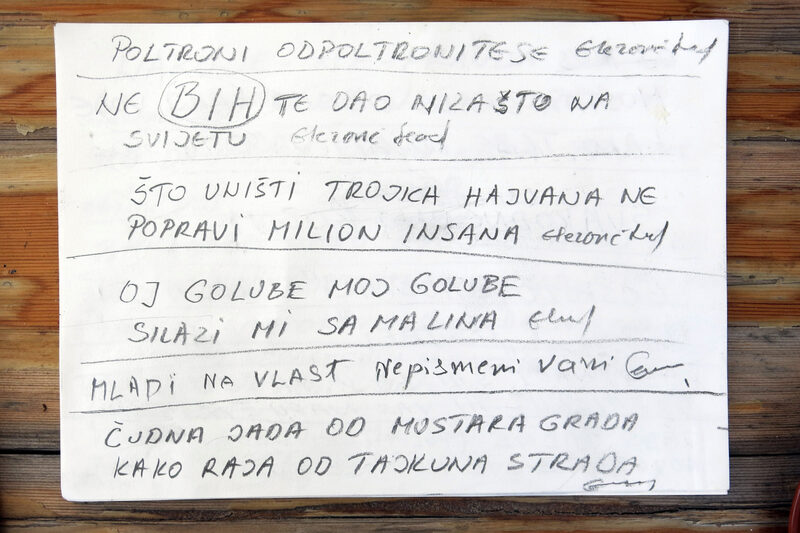 POLTRONI ODPOLTRONITESE
NE BIH TE DAO NIZAŠTO NA
SVIJETU
ŠTO UNIŠTI TROJICA HAJVANA NE
POPRAVI MILION INSANA
OJ GOLUBE MOJ GOLUBE
SILAZI MI SA MALINA
MLADI NA VLAST Nepismeni vani
ČUDNA JADA OD MOSTARA GRADA
KAKO RAJA OD TAJKUNA STRADA